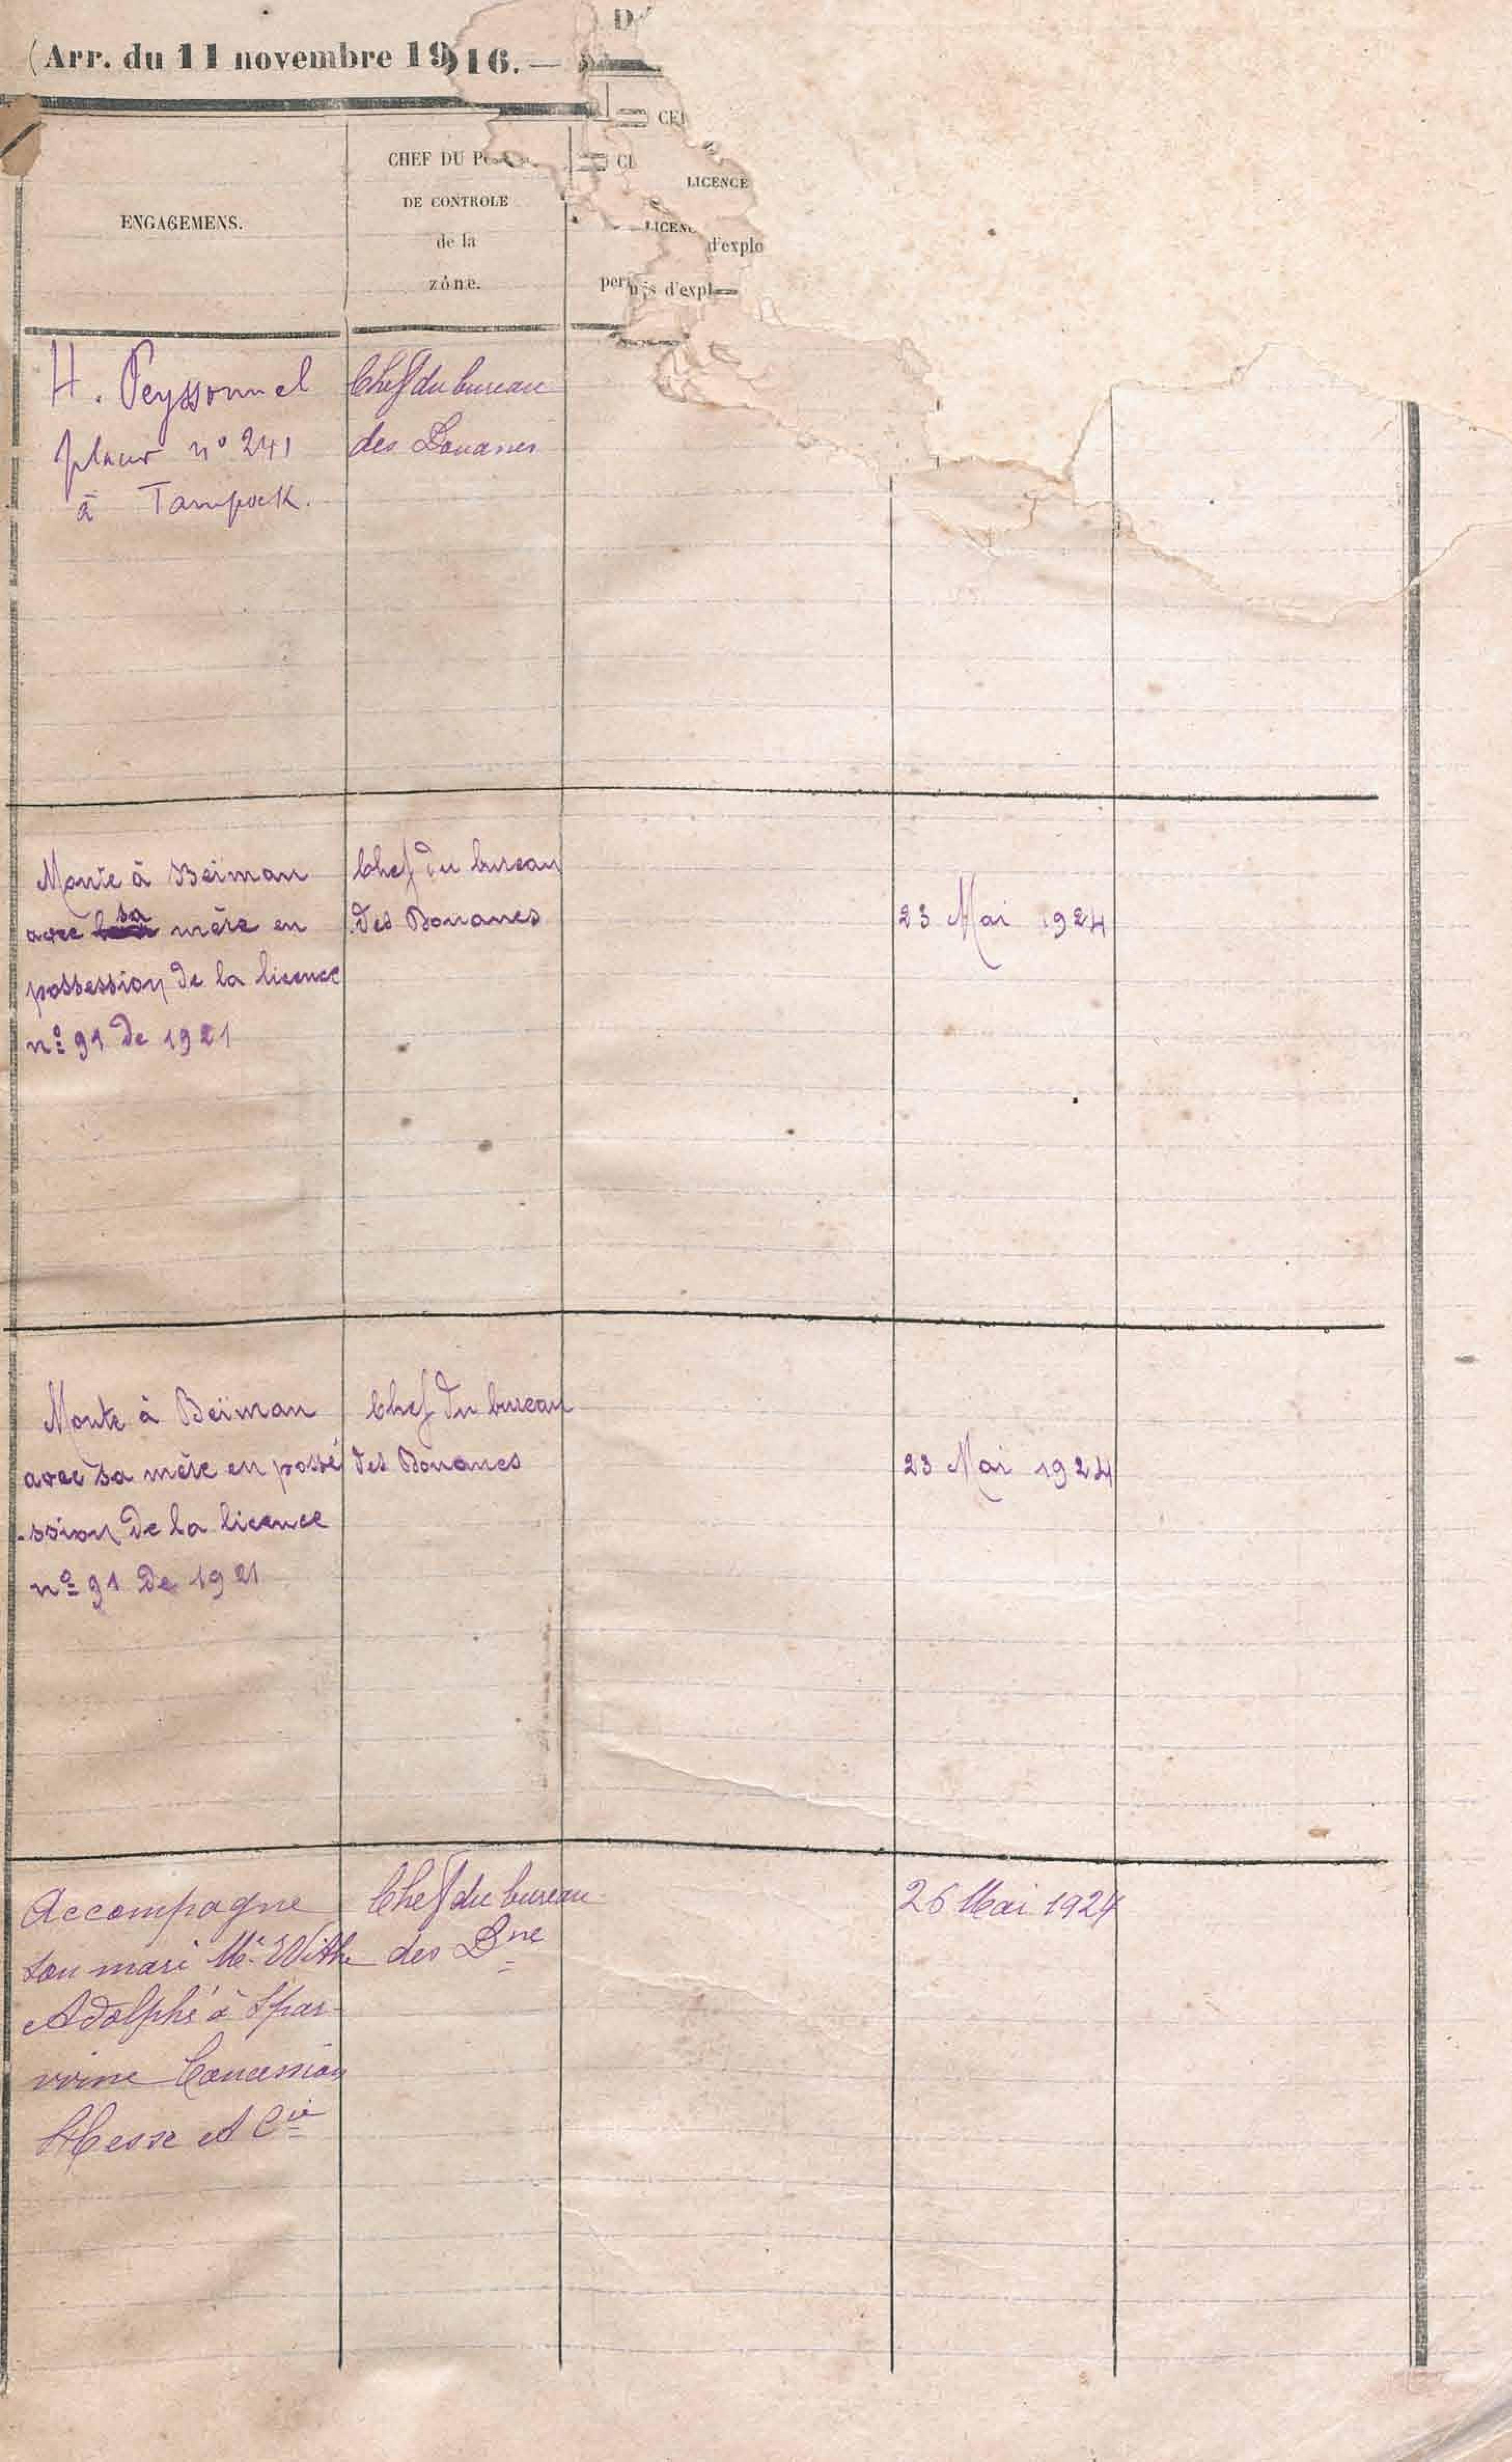 (Arr. du 11 novembre 1916. —
ENGAGEMENS.
CHEF DU
DE CONTROLE
de la
zóne.
LICENCE
d'explo
H. Peyssonnel
placer n° 241
à Tampock.
Chef du bureau
des Douanes
Monte à Beïman
avec sa mère en
possession de la licence
nº 91 de 1921
Chef du bureau
des Douanes
23 Mai 1924
Monte à Beïman
avec sa mère en possé
-ssion de la licence
nº 91 de 1921
Chef du bureau
des Douanes
23 Mai 1924
Accompagne
son mari Mr. Withe
Adolphe à Spar-
wine Concession
Hesse et Cie
Chef du bureau
des Dne
26 Mai 1924